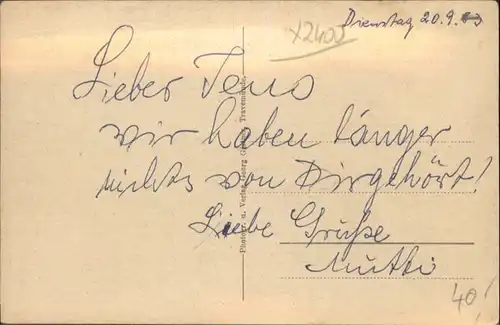 Dienstag 20.9.
X2400
Lieber Teno
wir haben länger
nichts von Dir gehört!
Liebe Grüße
Mutti
Photogr. u. Verlag Georg Travemünde.
40!